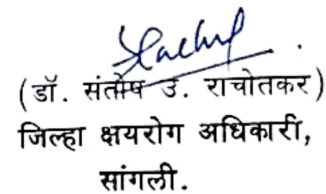 (डॉ. संतोष उ. राचोतकर)
जिल्हा क्षयरोग अधिकारी,
सांगली.